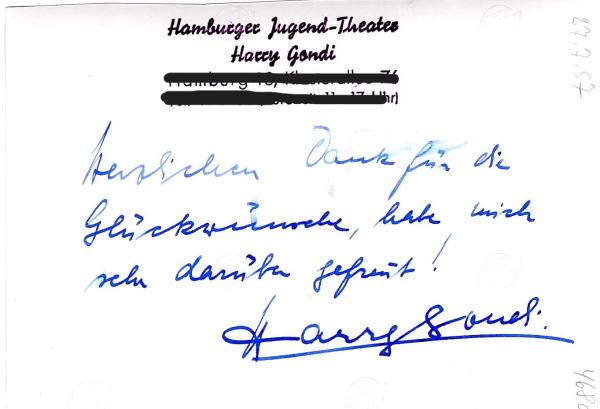 Hamburger Jugend-Theater
Harry Gondi
Herzlichen Dank für die
Glückwünsche, habe mich
sehr darüber gefreut!
Harry Gondi.
27.7.57